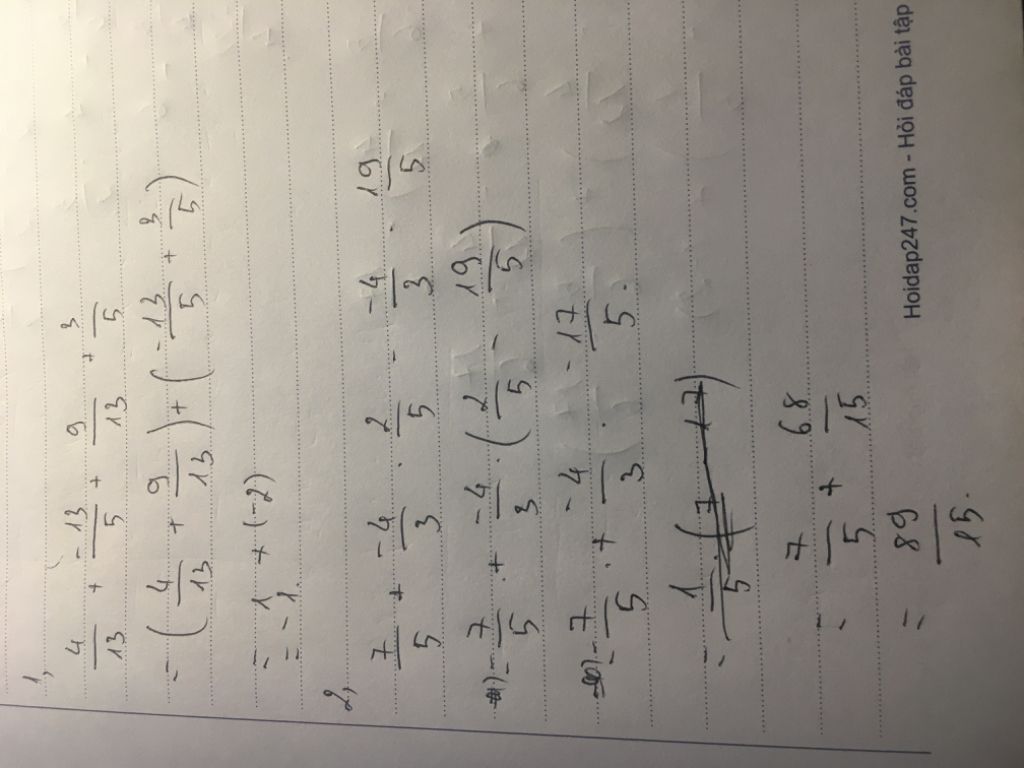 1,
4/13 + -13/5 + 9/13 + 3/5
= (4/13 + 9/13) + (-13/5 + 3/5)
= 1 + (-2)
= -1.
2,
7/5 + -4/3 . 2/5 - -4/3 . 19/5
= 7/5 + -4/3 . (2/5 - 19/5)
= 7/5 + -4/3 . -17/5.
= 7/5 + 68/15
= 89/15.
Hoidap247.com - Hỏi đáp bài tập